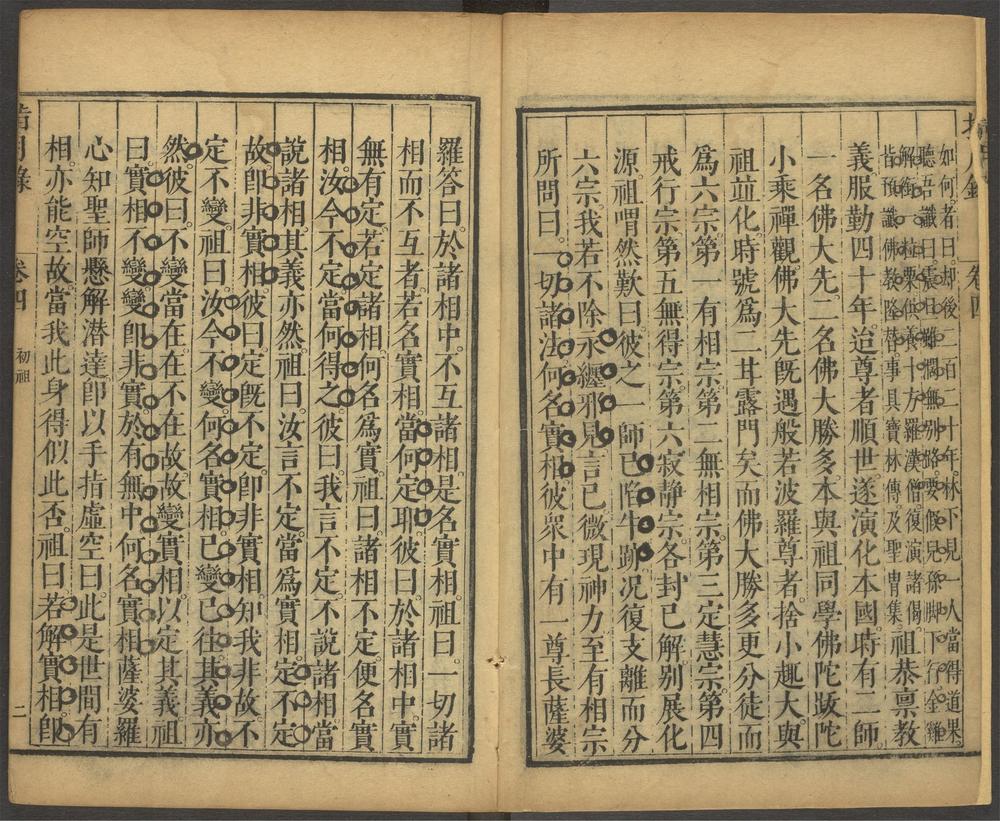 指月錄 卷四
如何者曰。却後一百二十年。林下見一人當得道果。
聽吾讖曰。震旦雖闊無別路。要假兒孫脚下行。金雞
解銜一粒粟。供養十方羅漢僧。復演諸偈。
皆預讖佛教隆替。事具寶林傳及聖胄集。祖恭禀教
義。服勤四十年。迨尊者順世。遂演化本國。時有二師。
一名佛大先。二名佛大勝多。本與祖同學佛陀跋陀
小乘禪觀。佛大先既遇般若波羅尊者。捨小趣大。與
祖竝化。時號爲二甘露門矣。而佛大勝多更分徒而
爲六宗。第一有相宗。第二無相宗。第三定慧宗。第四
戒行宗。第五無得宗。第六寂靜宗。各封己解。別展化
源。祖喟然歎曰。彼之一師已陷牛跡。况復支離而分
六宗。我若不除。永纏邪見。言已微現神力。至有相宗
所。問曰。一切諸法何名實相。彼衆中有一尊長薩婆
羅答曰。於諸相中不互諸相。是名實相。祖曰。一切諸
相而不互者。若名實相。當何定耶。彼曰。於諸相中實
無有定。若定諸相何名爲實。祖曰。諸相不定便名實
相。汝今不定。當何得之。彼曰。我言不定。不說諸相。當
說諸相。其義亦然。祖曰。汝言不定當爲實相。定不定
故。即非實相。彼曰。定既不定。即非實相。知我非故。不
定不變。祖曰。汝今不變。何名實相。已變已往。其義亦
然。彼曰。不變當在。在不在故。故變實相以定其義。祖
曰。實相不變。變即非實。於有無中何名實相。薩婆羅
心知聖師懸解潛達。即以手指虛空曰。此是世間有
相。亦能空故。當我此身得似此否。祖曰。若解實相。即
指月錄 卷四 初祖 二